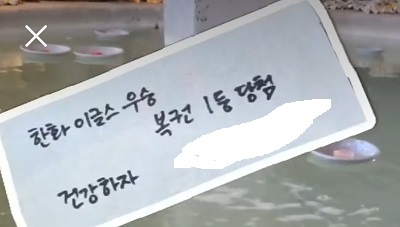 한화 이글스 우승
복권 1등 당첨
건강하자